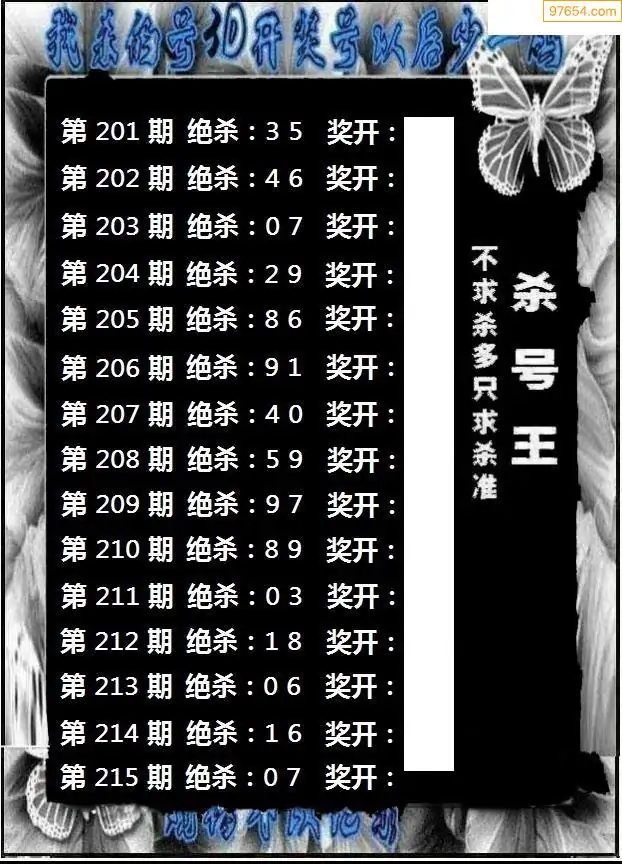 97654.com
我杀的号3D开奖号以后少一码
第 201 期 绝杀：3 5 奖开：
第 202 期 绝杀：4 6 奖开：
第 203 期 绝杀：0 7 奖开：
第 204 期 绝杀：2 9 奖开：
第 205 期 绝杀：8 6 奖开：
第 206 期 绝杀：9 1 奖开：
第 207 期 绝杀：4 0 奖开：
第 208 期 绝杀：5 9 奖开：
第 209 期 绝杀：9 7 奖开：
第 210 期 绝杀：8 9 奖开：
第 211 期 绝杀：0 3 奖开：
第 212 期 绝杀：1 8 奖开：
第 213 期 绝杀：0 6 奖开：
第 214 期 绝杀：1 6 奖开：
第 215 期 绝杀：0 7 奖开：
杀号王
不求杀多只求杀准